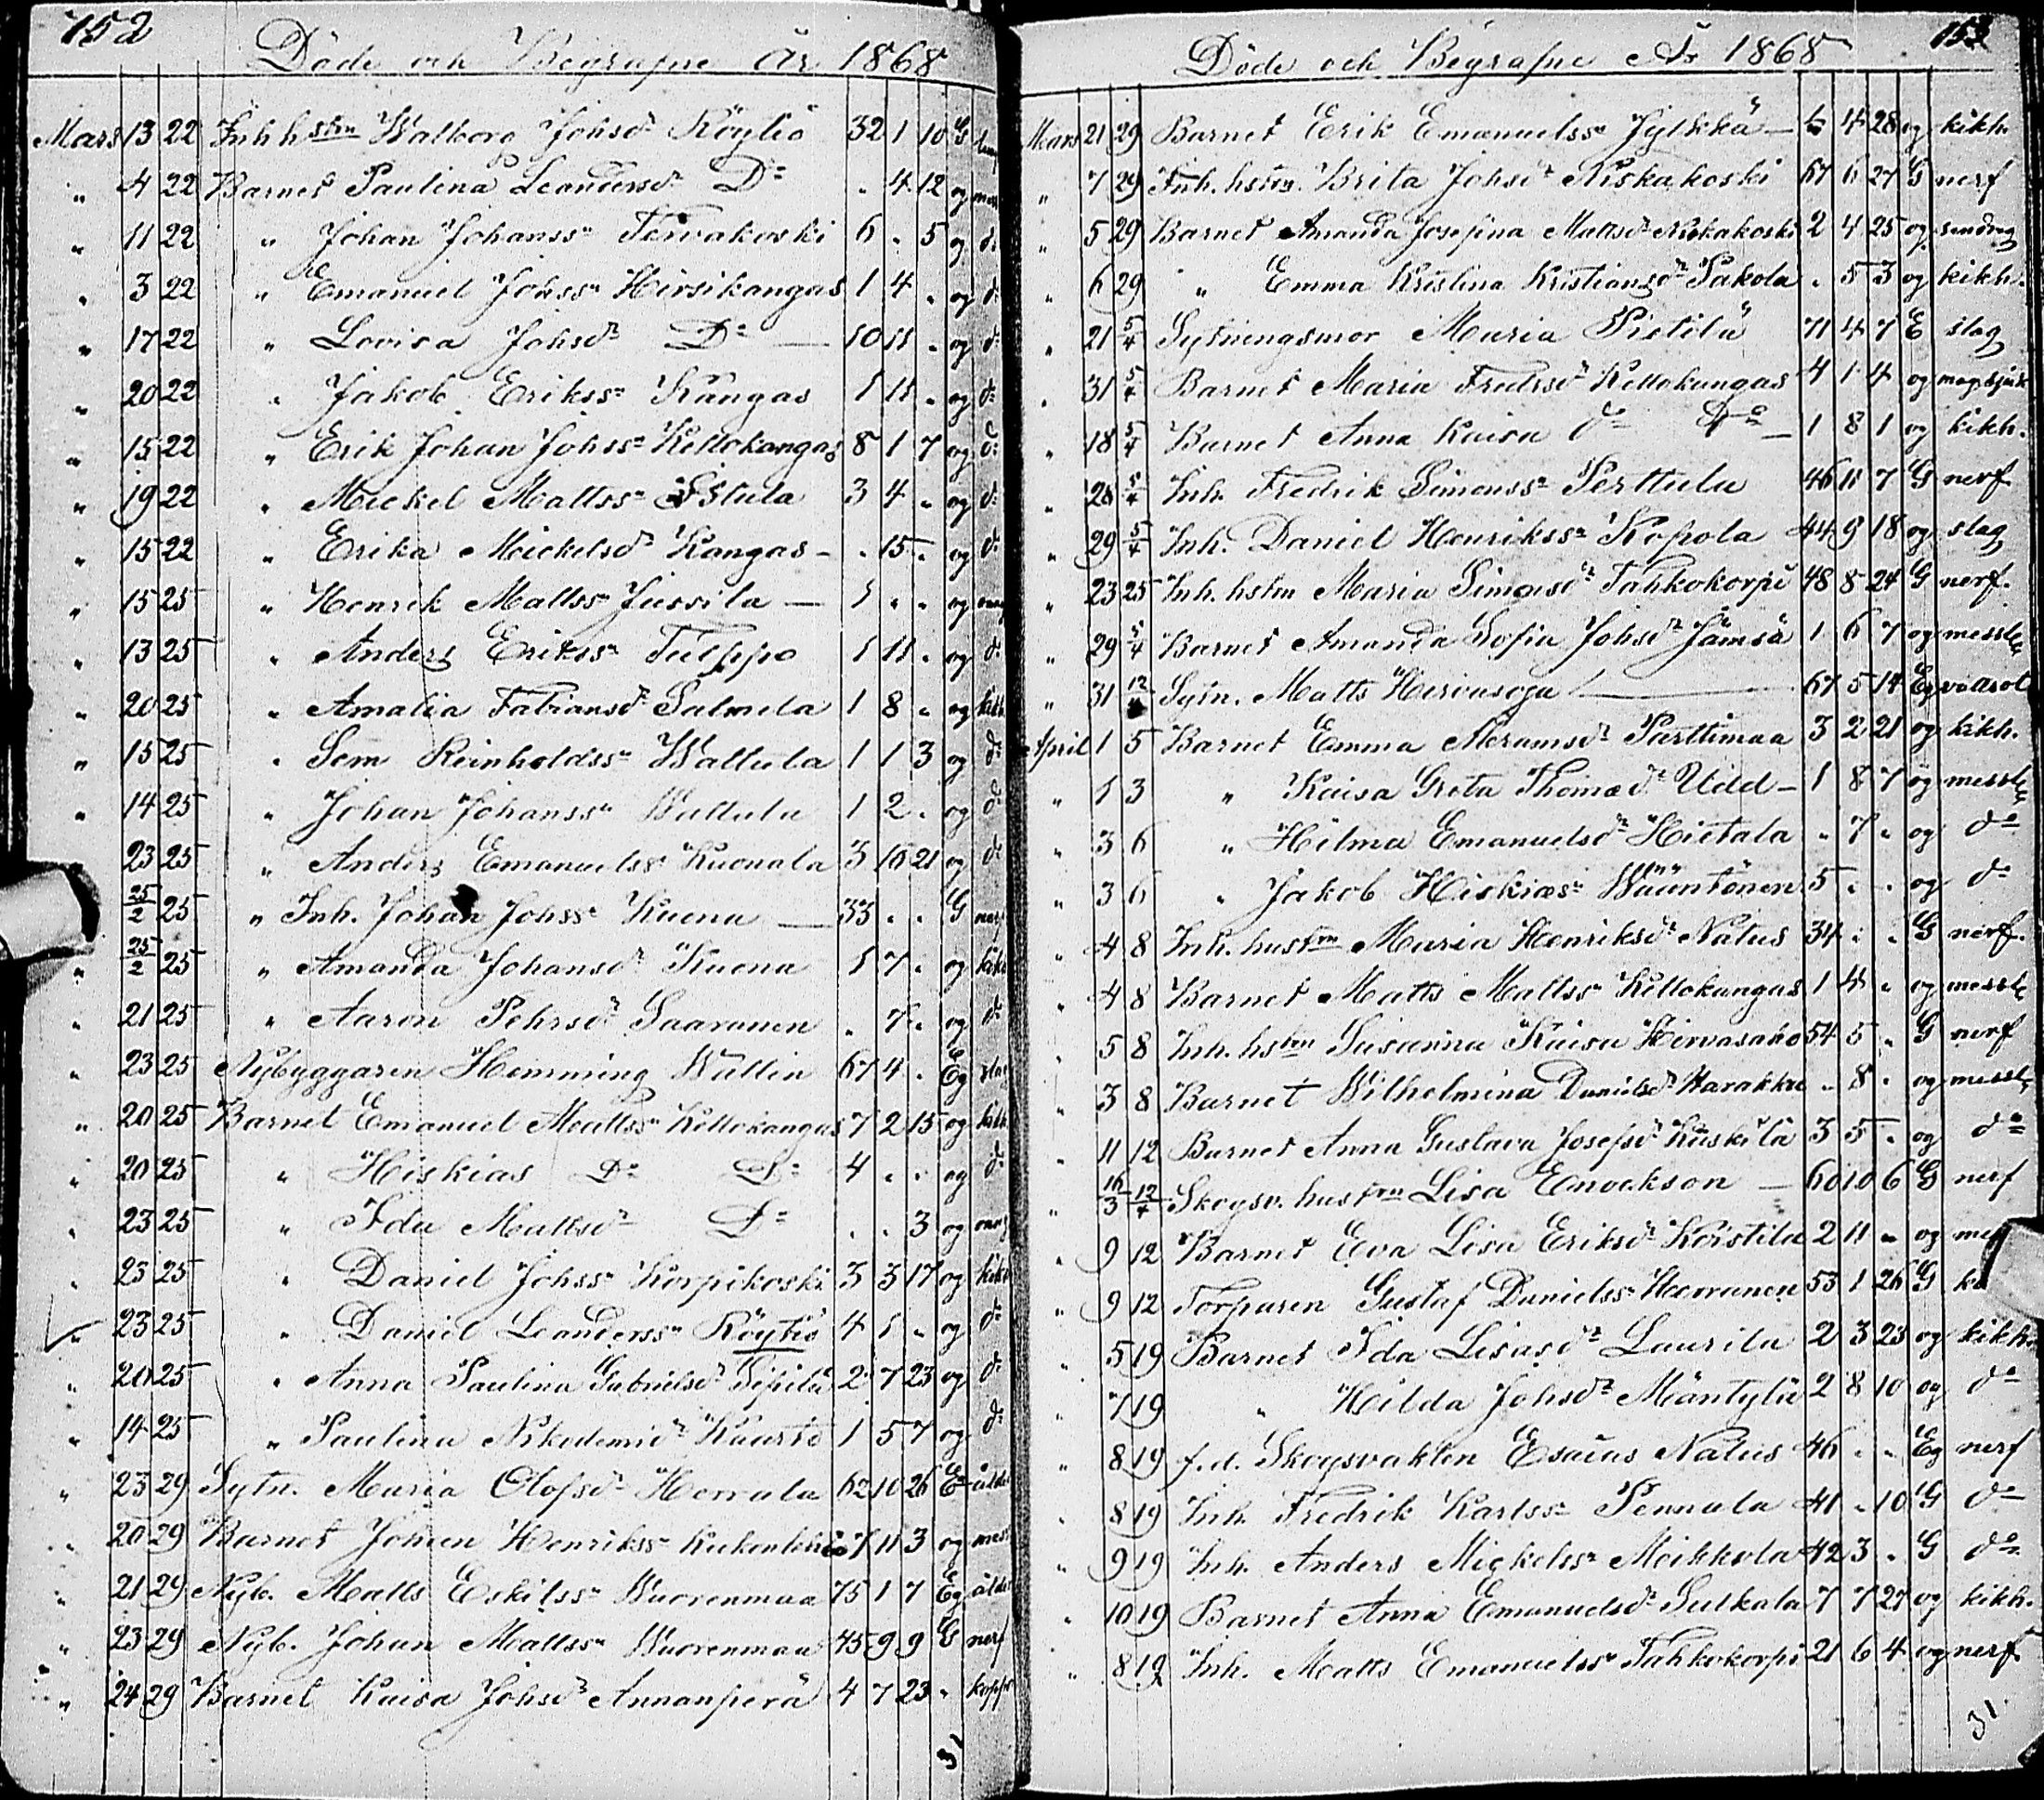 152
Döde och Begrafne År 1868
Mars 13 22 Inh hstrn Walborg Johsdr Röytiö 32 1 10 G
" 4 22 Barnet Paulina Leandersdr Do . 4 12 og
" 11 22 " Johan Johanss. Tervakoski 6 . 5 og do
" 3 22 " Emanuel Johss. Hirsikangas 1 4 . og do
" 17 22 " Lovisa Johsdr Do — 10 11 . og do
" 20 22 " Jakob Erikss. Kangas 1 11 . og do
" 15 22 " Erik Johan Johss. Kellokangas 8 1 7 og do
" 19 22 " Mickel Mattss. 3 4 . og do
" 15 22 " Erika Mickelsdr Kangas – . 15 . og do
" 15 25 " Henrik Mattss. Jussila — 1 . . og
" 13 25 " Anders Erikss. Tulppo 1 11 . og do
" 20 25 " Amalia Fabiansdr Salmela 1 8 . og kikh
" 15 25 " Sem Reinholdss. Wattula 1 1 3 og do
" 14 25 " Johan Johanss. Wattula 1 2 . og do
" 23 25 " Anders Emanuelss. Kuonala 3 21 og do
" 25/2 25 " Inh. Johan Johss. Kuona — 33 . . G nerf
" 25/2 25 " Amanda Johansdr Kuona 1 7 . og kikh
" 21 25 " Aaron Pehrsdr Saaranen . 7 . og do
" 23 25 Nybyggaren Hemming Wallin 67 4 . Eg slag
" 20 25 Barnet Emanuel Mattss. Kellokangas 7 2 15 og kikh
" 20 25 " Hiskias Do Do 4 . . og do
" 23 25 " Ida Mattsdr Do . . 3 og
" 23 25 " Daniel Johss. Korpikoski 3 3 17 og kikh
" 23 25 " Daniel Leanderss. Röytiö 4 1 . og do
" 20 25 " Anna Paulina Gabrielsdr Sipilä 2 7 23 og do
" 14 25 " Paulina Nikodemisdr Kuusto 1 5 7 og do
" 23 29 Sytn. Maria Olofsdr Herrala 62 10 26 E ålder
" 20 29 Barnet Johan Henrikss. 7 11 3 og mess
" 21 29 Nyb. Matts Eskilss. Wuorenmaa 75 1 7 Eg ålder
" 23 29 Nyb. Johan Mattss. Wuorenmaa 45 9 9 G nerf
" 24 29 Barnet Kaisa Johsdr Annanperä 4 7 23 . koppr
31
153
Döde och Begrafne År 1868
Mars 21 29 Barnet Erik Emanuelss. Jylkkä — 6 4 28 og kikh.
" 7 29 Inh. hstrn. Brita Johsdr Niskakoski 67 6 27 G nerf
" 5 29 Barnet Amanda Josefina Mattsdr Niskakoski 2 4 25 og sendrag
" 6 29 " Emma Kristina Kristiansdr Pakola . 5 3 og kikh.
" 21 5/4 Sytningsmor Maria Pietilä 71 4 7 E slag
" 31 5/4 Barnet Maria Fredrsdr Kellokangas 4 1 4 og magsjuk
" 18 5/4 Barnet Anna Kaisa do Do — 1 8 1 og kikh.
" 28 5/4 Inh. Fredrik Simonss. Perttula 46 11 7 G nerf
" 29 5/4 Inh. Daniel Henrikss. Kopola 44 9 18 og slag
" 23 25 Inh. hstrn Maria Simonsdr Tahkokorpi 48 8 24 G nerf.
" 29 5/4 Barnet Amanda Sofia Johsdr Jämsä 1 6 7 og messle
" 31 12 Sytn. Matts Hirvasoja — 67 5 14 Eg vådsot
April 1 5 Barnet Emma Abramsdr Parttimaa 3 2 21 og kikh.
" 1 3 " Kaisa Greta Thomædr Udd – 1 8 7 og messle
" 3 6 " Hilma Emanuelsdr Hietala . 7 . og do
" 3 6 " Jakob Hiskiæs. Wääntönen 5 . . og do
" 4 8 Inh. hustrn Maria Henriksdr Natus 34 . . G nerf.
" 4 8 Barnet Matts Mattss. Kellokangas 1 4 . og messle
" 5 8 Inh. hstrn Susanna Kaisa Hirvasaho 54 5 . G nerf
" 3 8 Barnet Wilhelmina Danielsdr Harakka . 8 . og messle
" 11 12 Barnet Anna Gustava Josefsdr 3 5 . og do
" 16/3 12/4 Skogsv. hustrn Lisa Enockson — 60 10 6 G nerf
" 9 12 Barnet Eva Lisa Eriksdr Koistila 2 11 . og
" 9 12 Torparen Gustaf Danielss. Herranen 53 1 26 G
" 5 19 Barnet Ida Lisasdr Laurila 2 3 23 og kikh.
" 7 19 " Hilda Johsdr Mäntylä 2 8 10 og do
" 8 19 f.d. Skogsvakten Esaias Natus 46 . . Eg nerf
" 8 19 Inh. Fredrik Karlss. Pennala 41 . 10 G do
" 9 19 Inh. Anders Mickelss. Meikkola 42 3 . G do
" 10 19 Barnet Anna Emanuelsdr Sulkala 7 7 27 og kikh.
" 8 19 Inh. Matts Emanuelss. Tahkokorpi 21 6 4 og nerf
31